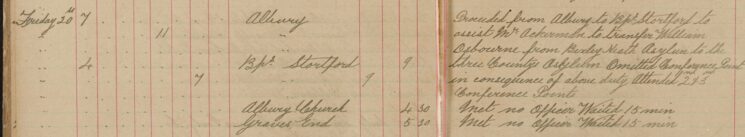 Friday 20th 7 Albury Proceeded from Albury to Bps. Stortford to
" " 11 " assist Mr Ackerman to transfer William
" " " Osbourne from Bexley Heath Asylum to the
" 4 Bps. Stortford 9 Three Countys Asylum Omitted Conference Point
" " 7 " 9 in consequence of above duty Attended 2nd & 3rd
" " " Conference Points
" " Albury Church 4 30 Met no Officer Waited 15 min
" " Graves End 5 30 Met no Officer Waited 15 min